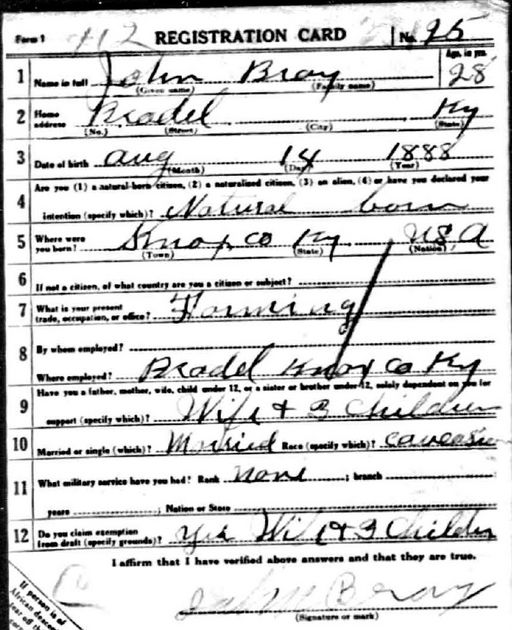 Form 1 412 REGISTRATION CARD No. 95
1 Name in full John Bray Age, in yrs. 28
(Given name) (Family name)
2 Home address Bradel Ky
(No.) (Street) (City) (State)
3 Date of birth Aug 14 1888
(Month) (Day) (Year)
4 Are you (1) a natural-born citizen, (2) a naturalized citizen, (3) an alien, (4) or have you declared your
intention (specify which)? Natural born
5 Where were you born? Knox Co Ky USA
(Town) (State) (Nation)
6 If not a citizen, of what country are you a citizen or subject?
7 What is your present trade, occupation, or office? Farming
8 By whom employed?
Where employed? Bradel Knox Co Ky
9 Have you a father, mother, wife, child under 12, or a sister or brother under 12, solely dependent on you for
support (specify which)? Wife + 3 Children
10 Married or single (which)? Married Race (specify which)? Caucasian
11 What military service have you had? Rank None ; branch
years ; Nation or State
12 Do you claim exemption from draft (specify grounds)? Yes Wife + 3 Children
I affirm that I have verified above answers and that they are true.
Bray
(Signature or mark)
If person is of
African descent
tear off